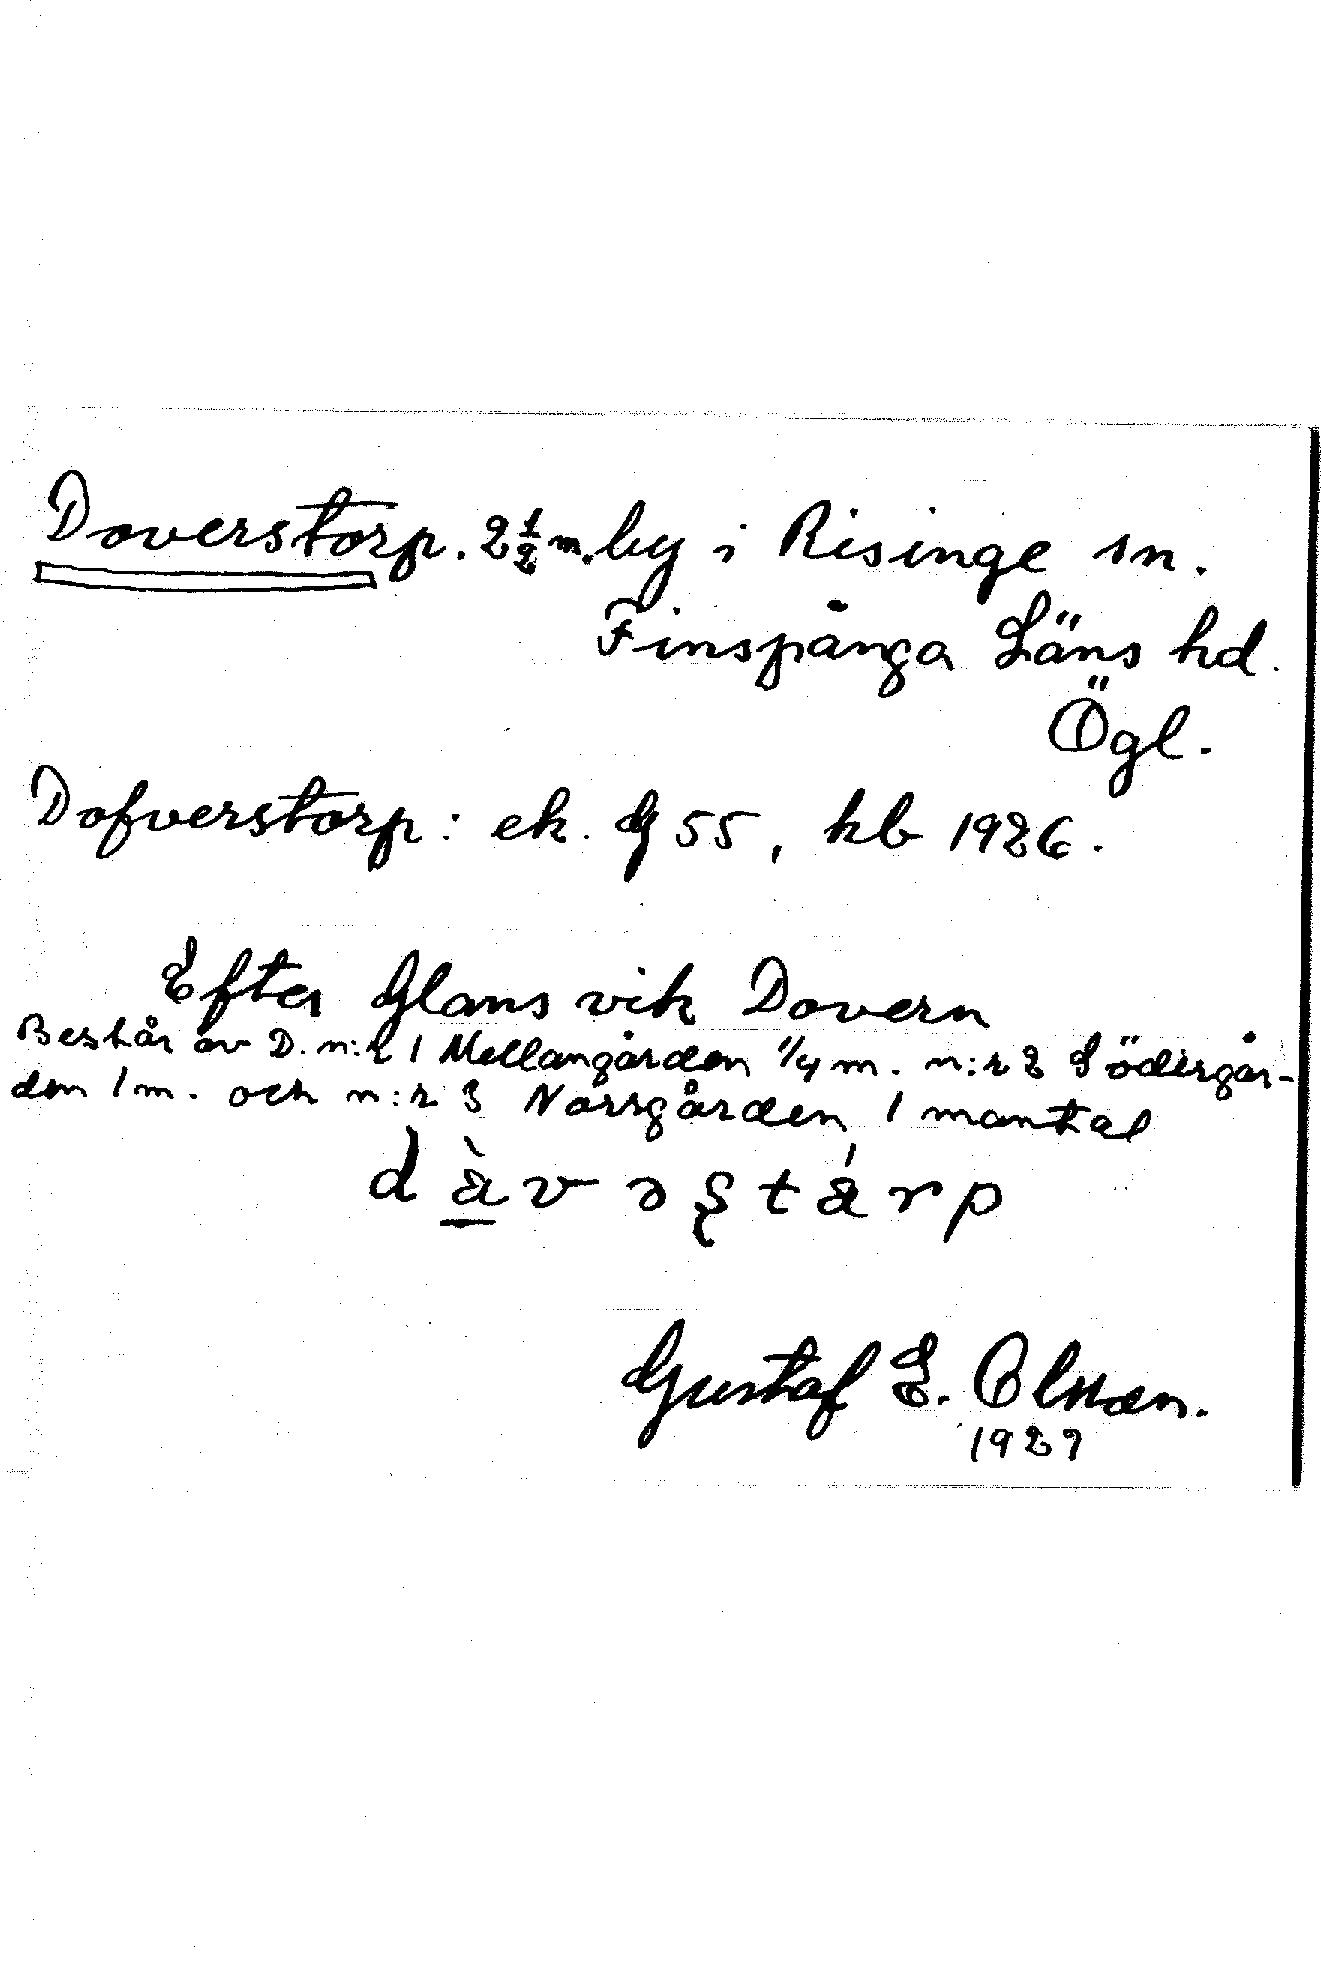 Doverstorp. 2 1/2 m. by i Risinge sn.
Finspånga Läns hd.
Ögl.
Dofverstorp: ek. G 55, kb 1926.
Efter Glans vik Dovern
Består av D. n:r 1 Mellangården 1/4 m. n:r 2 Södergår-
den 1 m. och n:r 3 Norrgården 1 mantal
Gustaf E. Olsson.